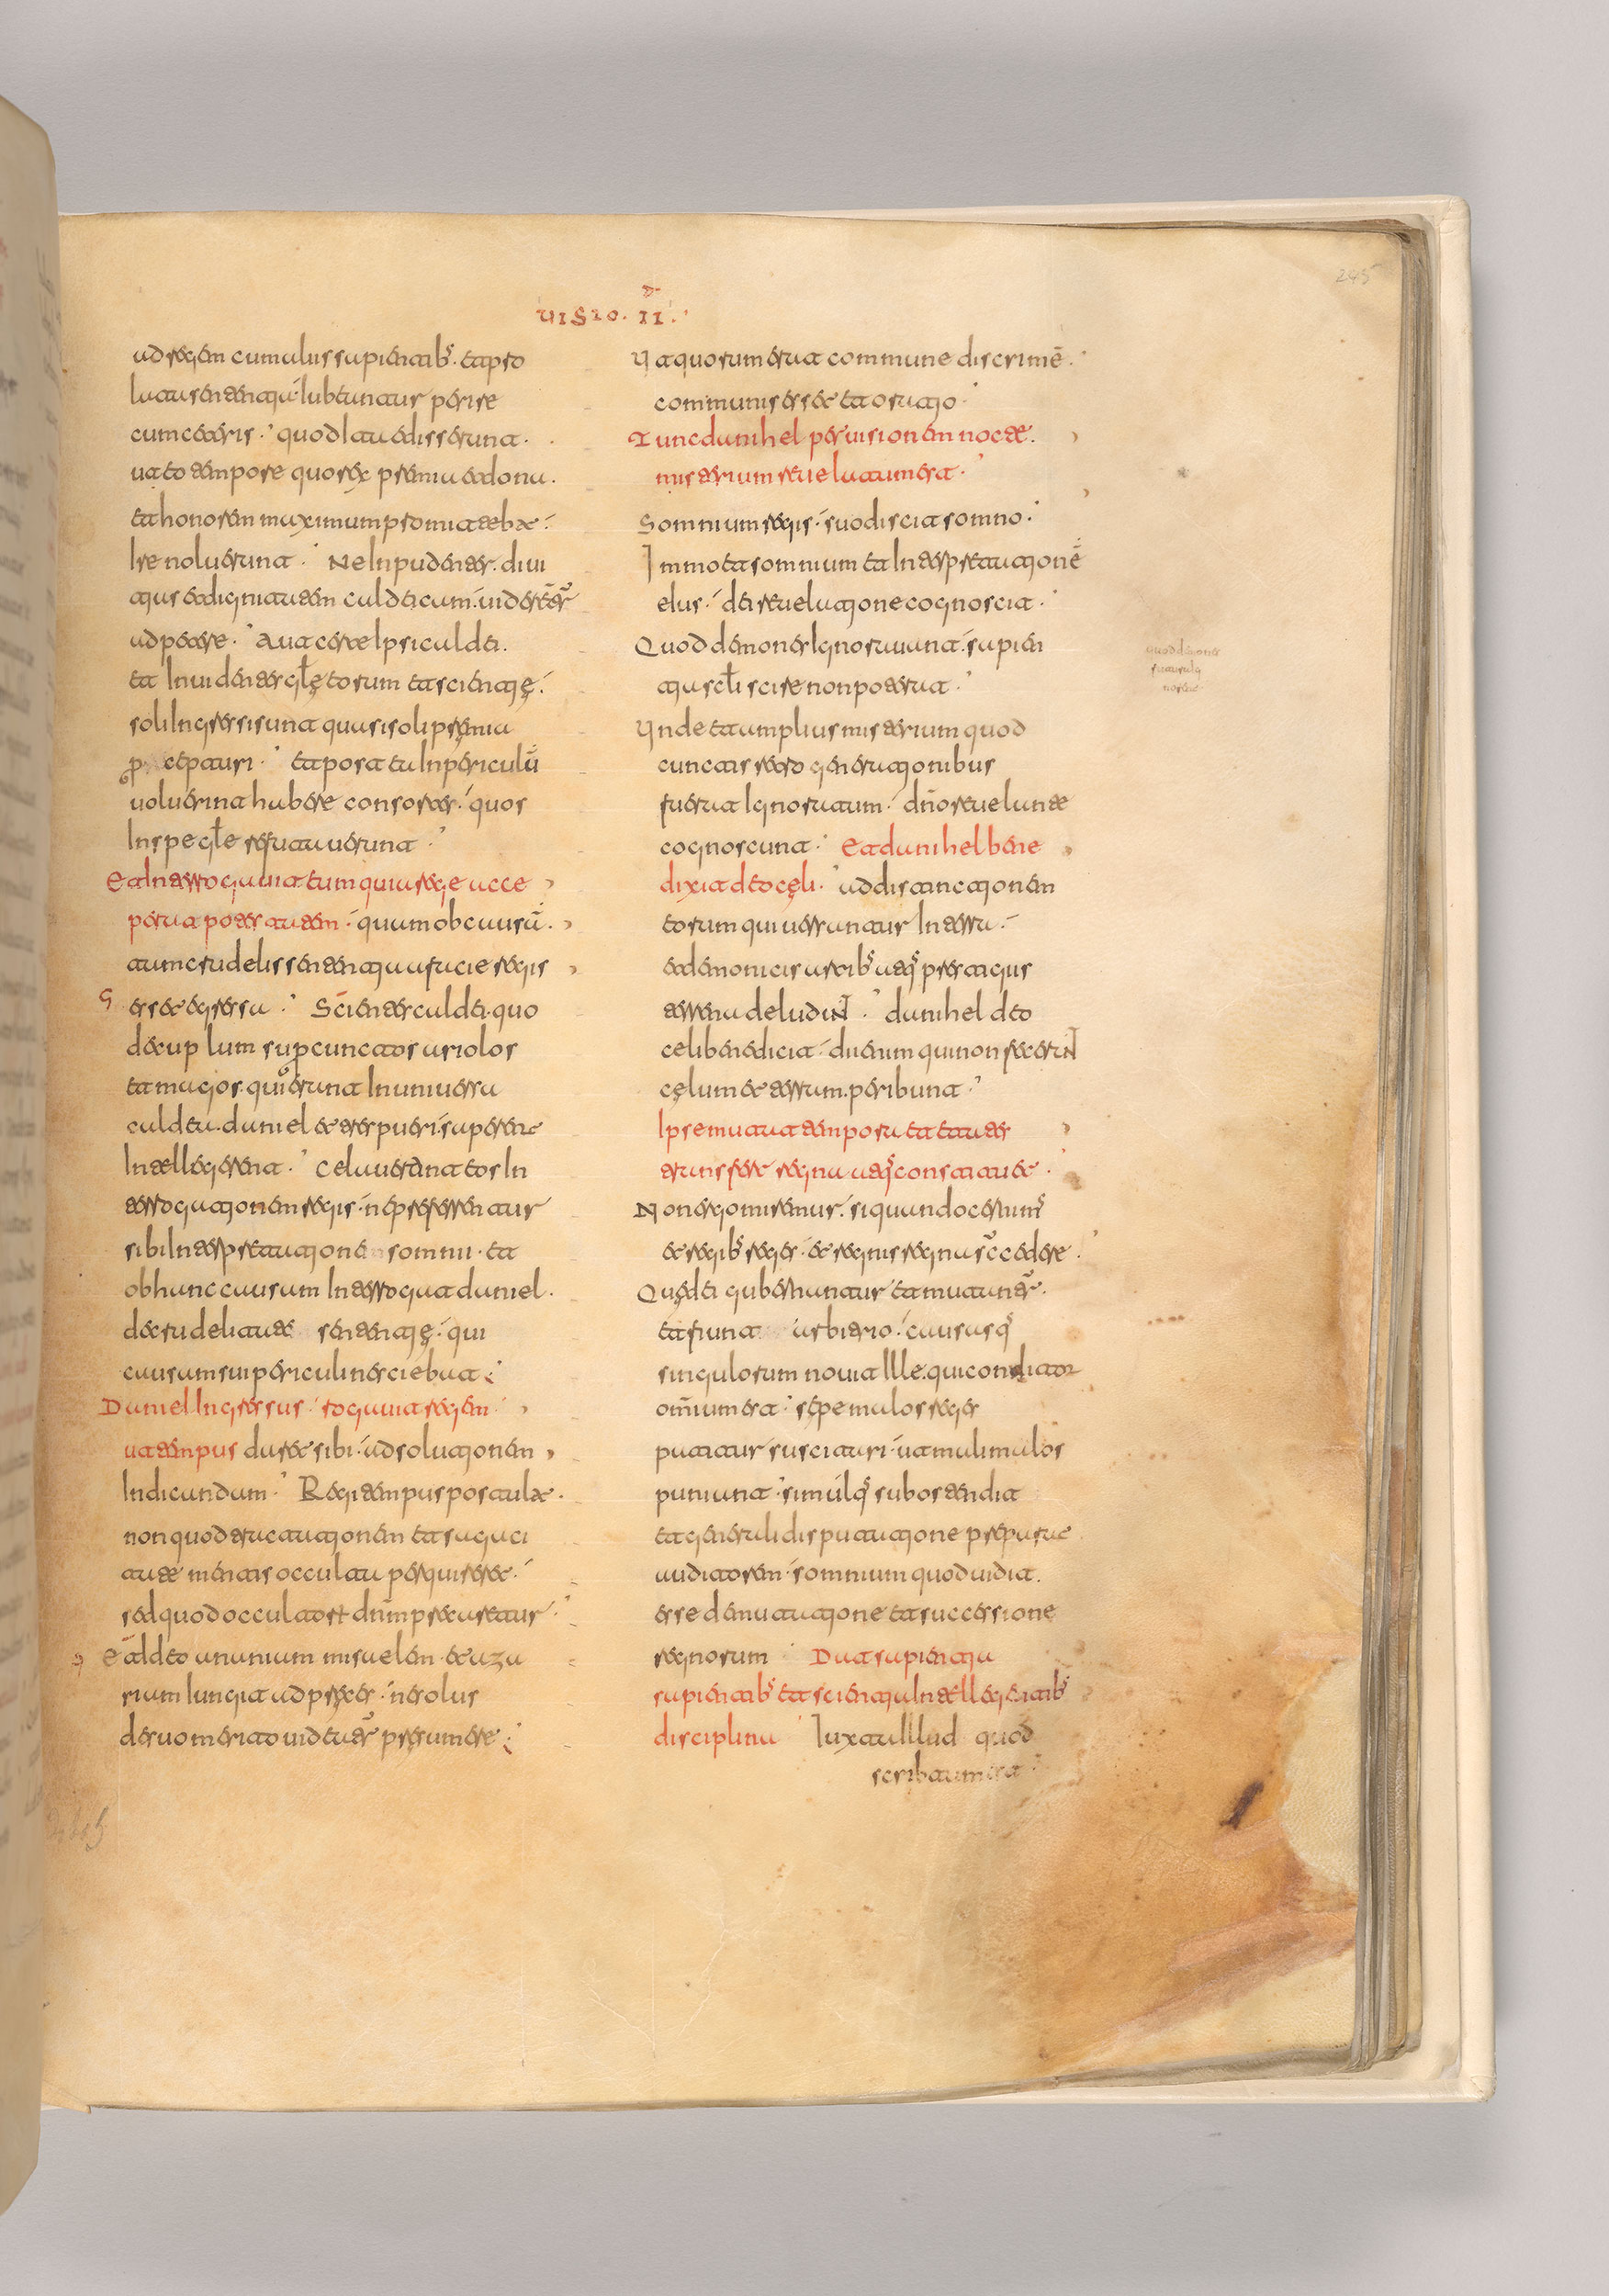 VISIO. II.
ad regem cum aliis sapientibs. et pro
lata sententia iubentur perire
cum ceteris. quod ita edisserunt.
ut eo tempore quo rex premia et dona.
et honorem maximum promittebat.
ire noluerunt. Ne inpudenter. divi
tias et dignitatem caldeicum. viderent̄r
adpetere. Aut certe ipsi caldei.
et invidentes gl̄ę eorum et scientię.
soli ingressi sunt quasi soli pręmia
et post ea in periculū
voluerint habere consortes. quos
in spe gl̄e
Et interrogavit eum qui a rege acce
perat potestatem. quam ob causā.
tam crudelis sententia a facie regis
esset egressa. Scientes caldei. quo
decuplum sup cunctos ariolos
et magos. qui erant in universa
caldea. daniel et tres pueri. saperent
intellegerent. Celaverunt eos in
terrogationem regis. ne preferrentur
sibi in interpretatione somnii. et
ob hunc causam interrogat daniel.
de crudelitate sententię. qui
causam sui periculi nesciebat.
Daniel ingressus. rogavit regem
ut tempus daret sibi. ad solutionem
indicandum. Regi tempus postulat.
non quod tractationem et sagaci
tate mentis occulta perquireret.
sed quod occultorum dn̄m precaretur.
Et ideo ananiam misaelem et aza
riam iungit ad pręces. ne solus
de suo merito videatr pręsumere.
Ut quorum erat commune discrimē.
communis esset et oratio
Tunc danihel per visionem nocte.
misterium revelatum est.
Somnium regis. suo discit somno.
Immo et somnium et interpretationē
eius. dei revelatione cognoscit.
Quod demones ignorabant. sapien
tia scl̄i scire non poterat.
Unde et amplius misterium quod
cunctis retro generationibus
fuerat ignoratum. dn̄o revelante
cognoscunt. Et danihel bene
dixit deo cęli. ad distinctionem
eorum qui versantur in terra.
et demonicis artibs atqe prestigiis
terrena deludunt. danihel deo
celi benedicit. dii enim qui non fecerunt
cęlum et terram. peribunt.
Ipse mutat tempora et etates
transfert regna atqe constituet.
Non ergo miremur. si quando cernims
et regibs reges. et regnis regna succedere.
Quę dei gubernantur et mutantr.
et fiunt arbitrio. causasqe
singulorum novit ille. qui conditor
om̄ium est. sępe malos reges
patitur suscitari. ut mali malos
puniant. simulqe subostendit
et generali disputatione preparat
auditorem. somnium quod vidit.
esse de mutatione et successione
regnorum. Dat sapientia
sapientibs et scientia intellegentibs
disciplina. Iuxta illud quod
scribtum est.